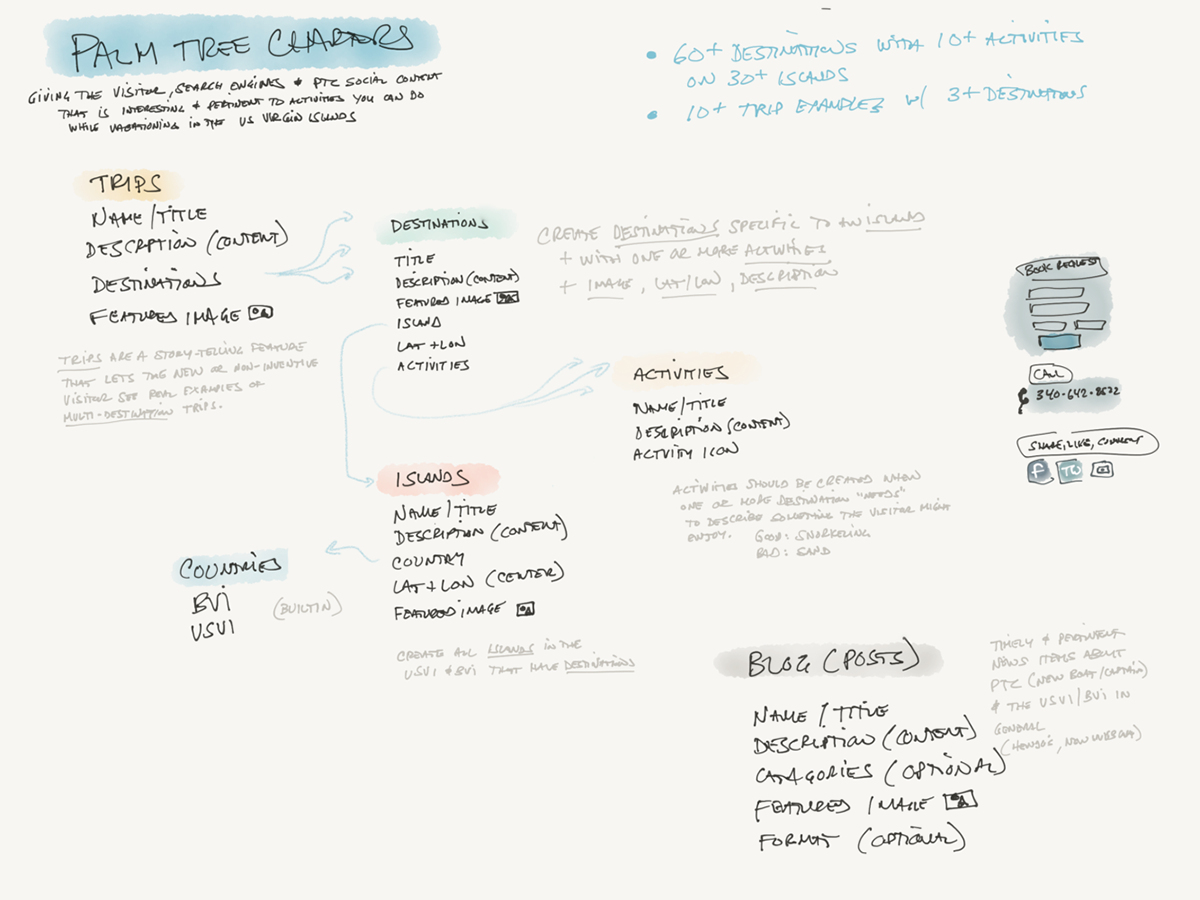 PALM TREE CHARTERS
GIVING THE VISITOR, SEARCH ENGINES & PTC SOCIAL CONTENT
THAT IS INTERESTING & PERTINENT TO ACTIVITIES YOU CAN DO
WHILE VACATIONING IN THE US VIRGIN ISLANDS
• 60+ DESTINATIONS WITH 10+ ACTIVITIES
ON 30+ ISLANDS
• 10+ TRIP EXAMPLES W/ 3+ DESTINATIONS
TRIPS
NAME/TITLE
DESCRIPTION (CONTENT)
DESTINATIONS
FEATURED IMAGE
TRIPS ARE A STORY-TELLING FEATURE
THAT LETS THE NEW OR NON-INVENTIVE
VISITOR SEE REAL EXAMPLES OF
MULTI-DESTINATION TRIPS.
DESTINATIONS
TITLE
DESCRIPTION (CONTENT)
FEATURED IMAGE
ISLAND
LAT + LON
ACTIVITIES
CREATE DESTINATIONS SPECIFIC TO AN ISLAND
+ WITH ONE OR MORE ACTIVITIES
+ IMAGE, LAT/LON, DESCRIPTION
ACTIVITIES
NAME/TITLE
DESCRIPTION (CONTENT)
ACTIVITY ICON
ACTIVITIES SHOULD BE CREATED WHEN
ONE OR MORE DESTINATION "NEEDS"
TO DESCRIBE SOMETHING THE VISITOR MIGHT
ENJOY. GOOD: SNORKELING
BAD: SAND
BOOK REQUEST
CALL
340-642-8522
SHARE, LIKE, CONNECT
f
ISLANDS
NAME/TITLE
DESCRIPTION (CONTENT)
COUNTRY
LAT + LON (CENTER)
FEATURED IMAGE
CREATE ALL ISLANDS IN THE
USVI & BVI THAT HAVE DESTINATIONS
COUNTRIES
BVI
USVI
(BUILTIN)
BLOG (POSTS)
NAME/TITLE
DESCRIPTION (CONTENT)
CATAGORIES (OPTIONAL)
FEATURED IMAGE
FORMAT (OPTIONAL)
TIMELY & PERTINENT
NEWS ITEMS ABOUT
PTC (NEW BOAT/CAPTAIN)
& THE USVI/BVI IN
GENERAL
NEW WEBSITE)